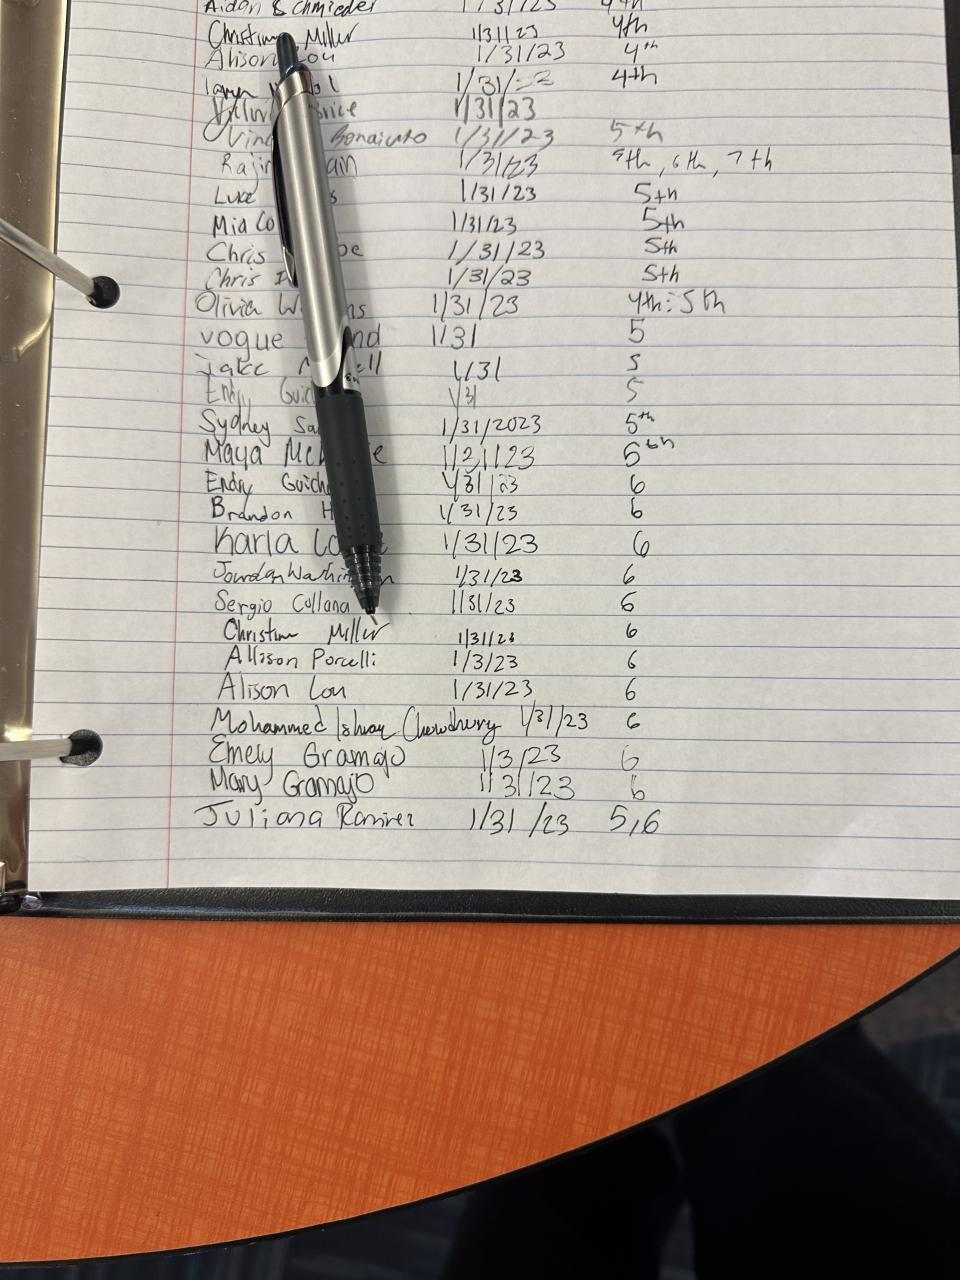 Aidan Schmieder 1/31/23 4th
Christine Miller 1/31/23 4th
Alison Lou 1/31/23 4th
1/31/23 4th
1/31/23
Bonaiuto 1/31/23 5th
1/31/23 5th, 6th, 7th
Luke 1/31/23 5th
Mia Co 1/31/23 5th
Chris 1/31/23 5th
Chris 1/31/23 5th
Olivia W ns 1/31/23 4th 5th
vogue nd 1/31 5
ll 1/31 5
Endy Guic 1/31 5
Sydney Sa 1/31/2023 5th
Maya McK e 5
Endry Guich 1/31/23 6
Brandon H 1/31/23 6
Karla Lo 1/31/23 6
Jourdan Washin n 1/31/23 6
Sergio Collana 1/31/23 6
Christine Miller 1/31/23 6
Allison Porcelli 1/3/23 6
Alison Lou 1/31/23 6
Mohammed Ishraq Chowdhury 1/31/23 6
Emely Gramajo 1/3/23 6
Mary Gramajo 1/31/23 6
Juliana Ramirez 1/31/23 5,6